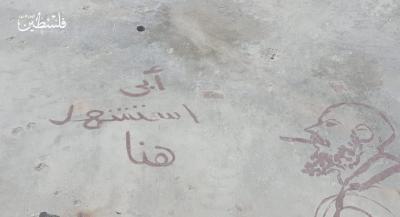 فلسطين
أبي
استشهد
هنا